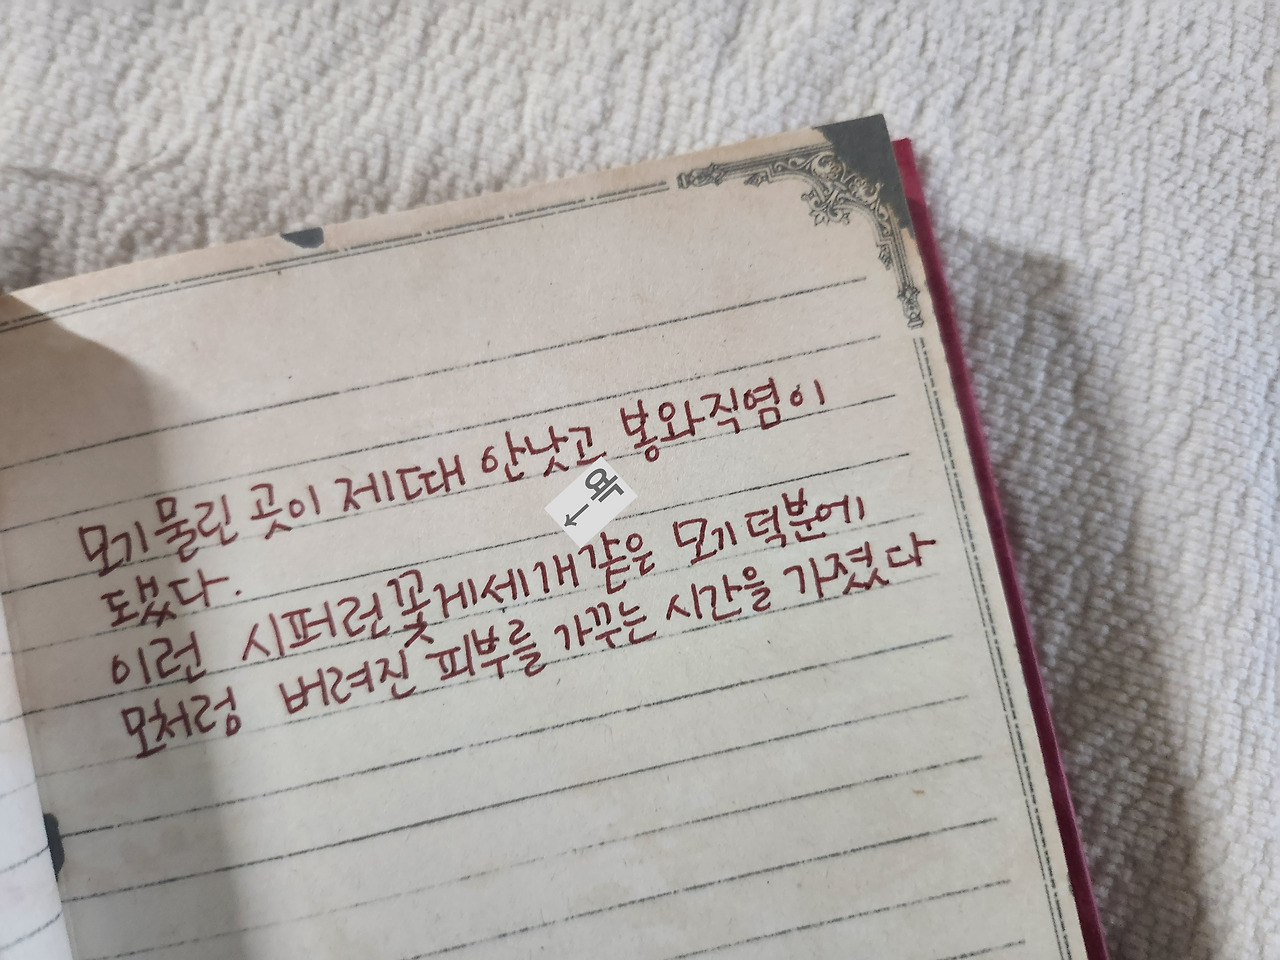 모기 물린 곳이 제때 안낫고 봉와직염이
됐다.
이런 시퍼런꽃게세개같은 모기 덕분에
모처럼 버려진 피부를 가꾸는 시간을 가졌다